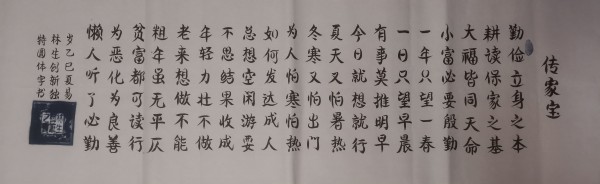 传家宝
勤俭立身之本
耕读保家之基
大福皆同天命
小富必要殷勤
一年只望一春
一日只望早晨
有事莫推明早
今日就想就行
夏天又怕暑热
冬寒又怕出门
为人怕寒怕热
如何发达成人
总想空闲游耍
不思结果收成
年轻力壮不做
老来想做不能
粗年虽无平仄
贫富都可读行
为恶化为良善
懒人听了必勤
岁乙巳夏易
林生创新独
特圆体字书